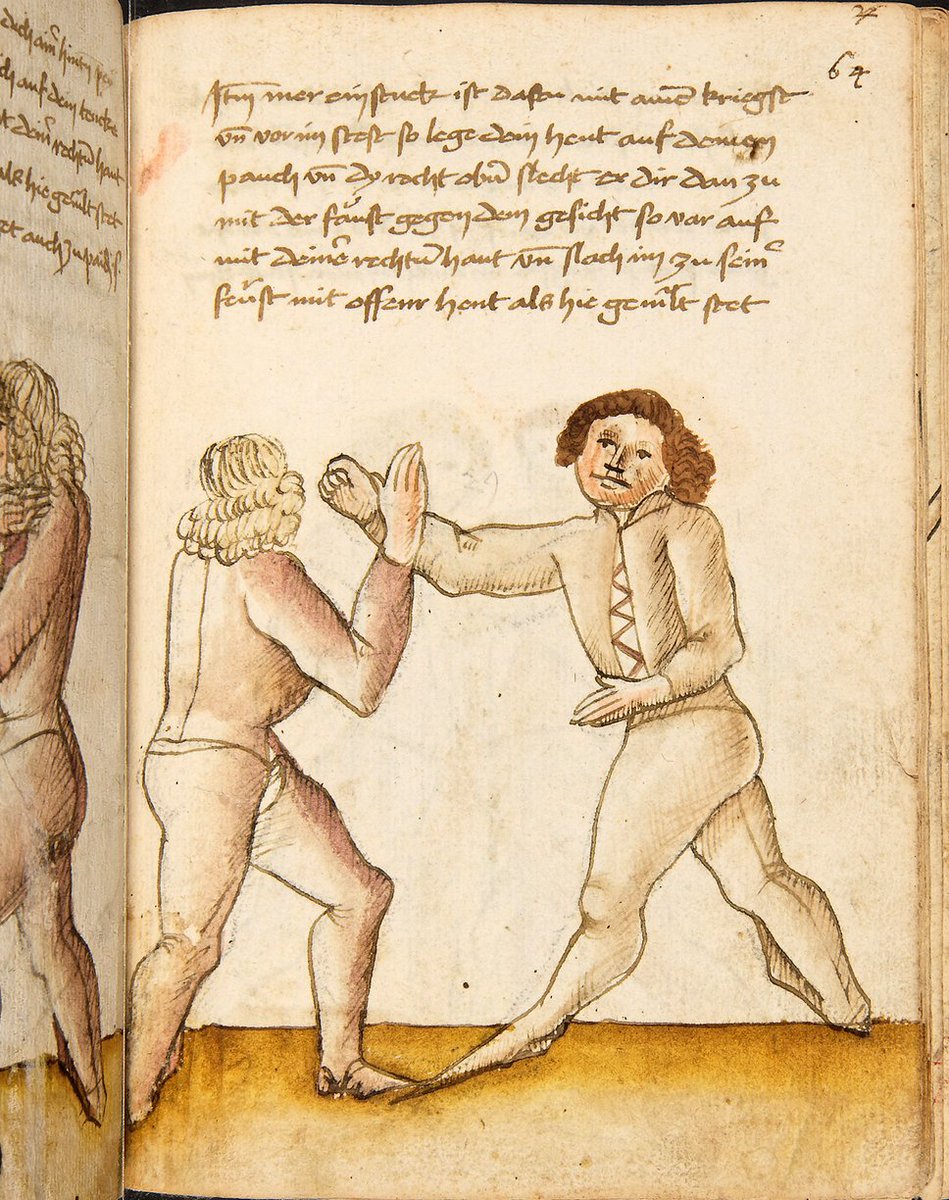 dich am hinten
ich auf dem
t deiner rechten hant
als hie gemlt stet
et auch zu
64
Itm mer ein stuck ist dastu mit aine kriegst
vn vor im stest so lege dein hent auf deinem
pauch vn dy recht obn slecht er dir dan zu
mit der faust gegen dem gesicht so var auf
mit deiner rechtn hant vn slach im zu seinr
feust mit offenr hent als hie gemlt stet